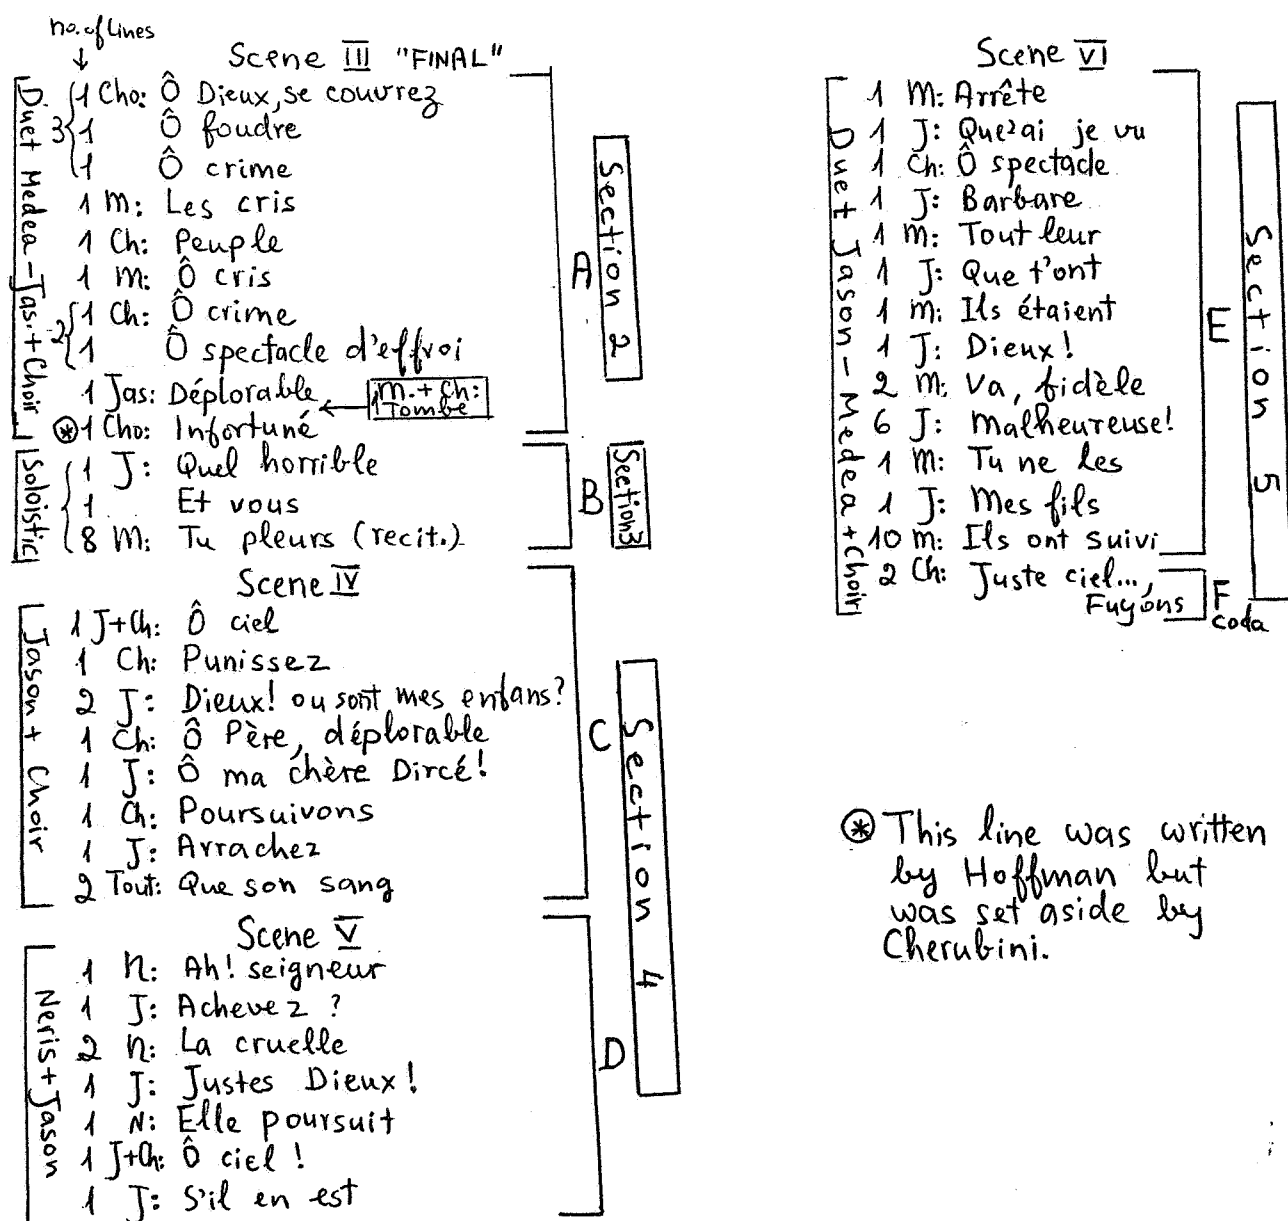 no. of lines
Scene III "FINAL"
D.
Duet Medea-Jas.+Choir
3
1 Cho: Ô Dieux, se couvrez
1 Ô foudre
1 Ô crime
1 M: Les cris
1 Ch: Peuple
1 M: Ô cris
2
1 Ch: Ô crime
1 Ô spectacle d'effroi
1 Jas: Déplorable
1 M.+Ch: Tombe
⊛ 1 Cho: Infortuné
A
Section 2
Soloistic
1 J: Quel horrible
1 Et vous
8 M: Tu pleurs (recit.)
B
Section 3
Scene IV
Jason + Choir
1 J+Ch: Ô ciel
1 Ch: Punissez
2 J: Dieux! ou sont mes enfans?
1 Ch: Ô Père, déplorable
1 J: Ô ma chère Dircé!
1 Ch: Poursuivons
1 J: Arrachez
2 Tout: Que son sang
C
Section 4
Scene V
Neris+Jason
1 N: Ah! seigneur
1 J: Achevez ?
2 N: La cruelle
1 J: Justes Dieux!
1 N: Elle poursuit
1 J+Ch: Ô ciel !
1 J: S'il en est
D
Scene VI
Duet Jason-Medea+Choir
1 M: Arrête
1 J: Que'ai je vu
1 Ch: Ô spectacle
1 J: Barbare
1 M: Tout leur
1 J: Que t'ont
1 M: Ils étaient
1 J: Dieux!
2 M: Va, fidèle
6 J: Malheureuse!
1 M: Tu ne les
1 J: Mes fils
10 M: Ils ont suivi
2 Ch: Juste ciel...,
Fuyons
E
F
coda
Section 5
⊛ This line was written
by Hoffman but
was set aside by
Cherubini.